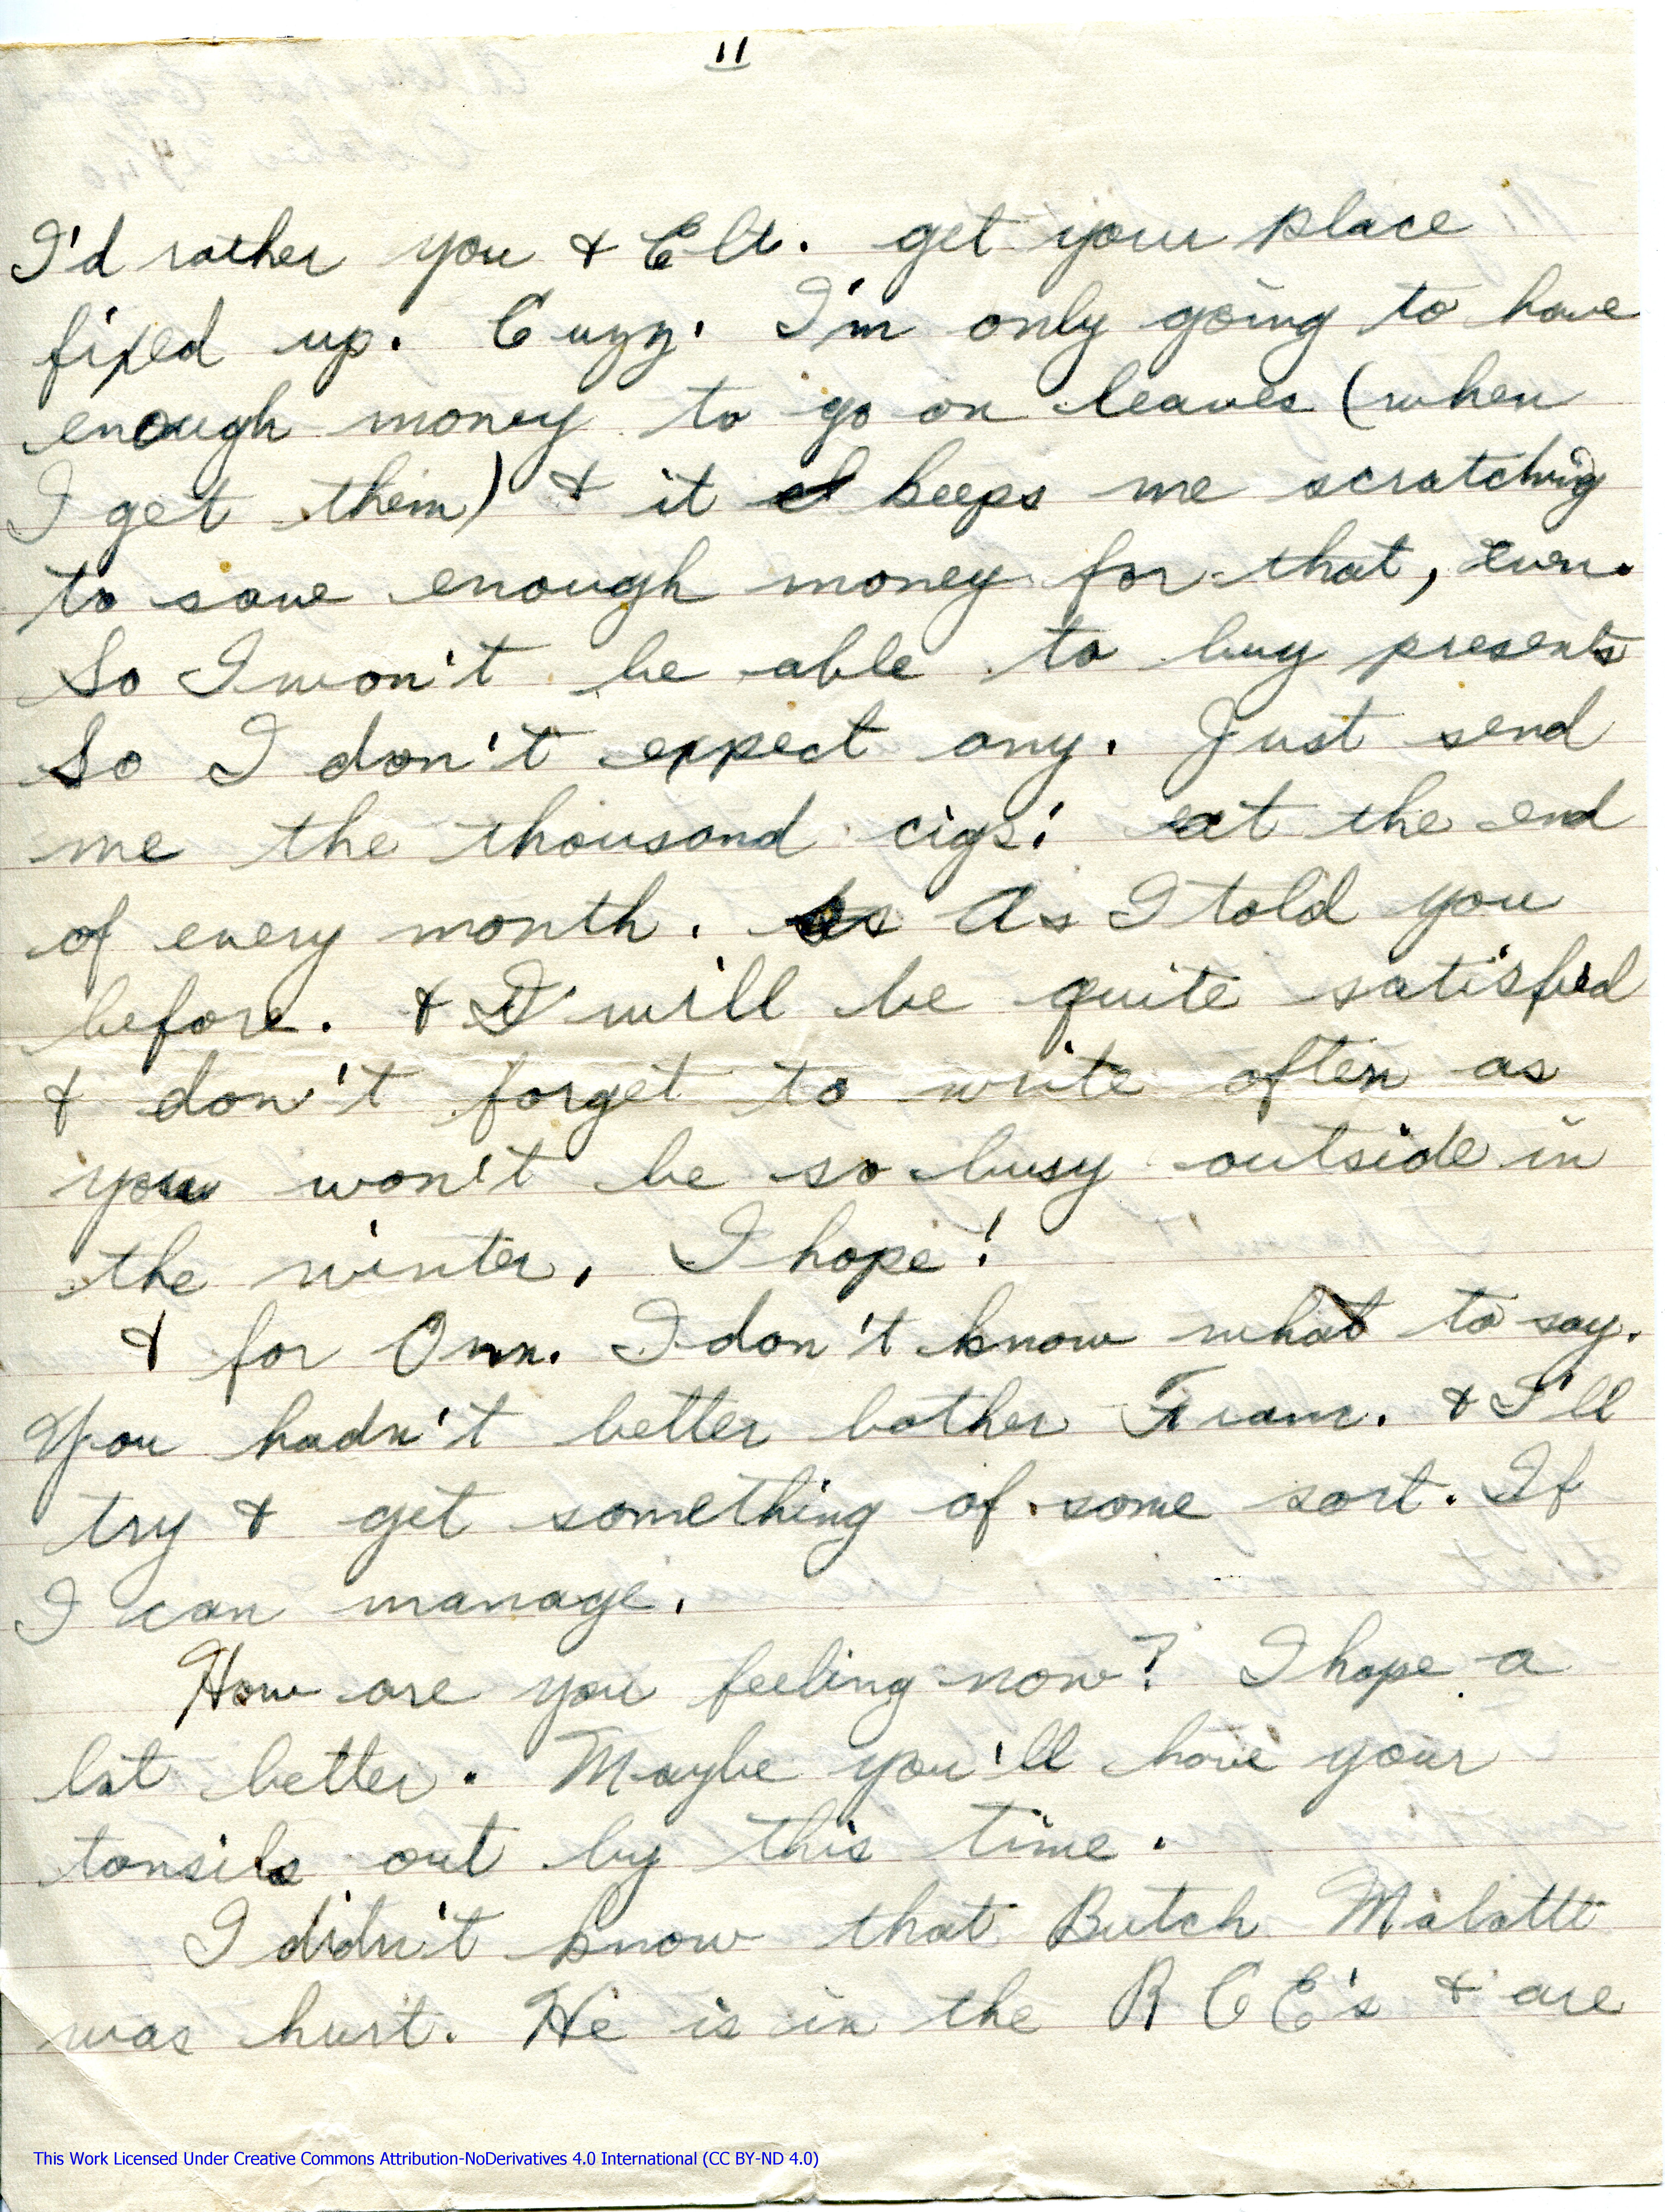 11
I'd rather you & Elt. get your place
fixed up. Cuzz. I'm only going to have
enough money to go on leaves (when
I get them) & it keeps me scratching
to save enough money for that, even.
So I won't be able to buy presents
So I don't expect any. Just send
me the thousand cigs: at the end
of every month. As I told you
before. & I will be quite satisfied
& don't forget to write often as
you won't be so busy outside in
the winter, I hope!
& for Orm. I don't know what to say.
You hadn't better bother & I'll
try & get something of some sort. If
I can manage.
How are you feeling now? I hope a
lot better. Maybe you'll have your
tonsils out by this time.
I didn't know that Butch Malott
was hurt. He is in the R C E's & are
This Work Licensed Under Creative Commons Attribution-NoDerivatives 4.0 International (CC BY-ND 4.0)